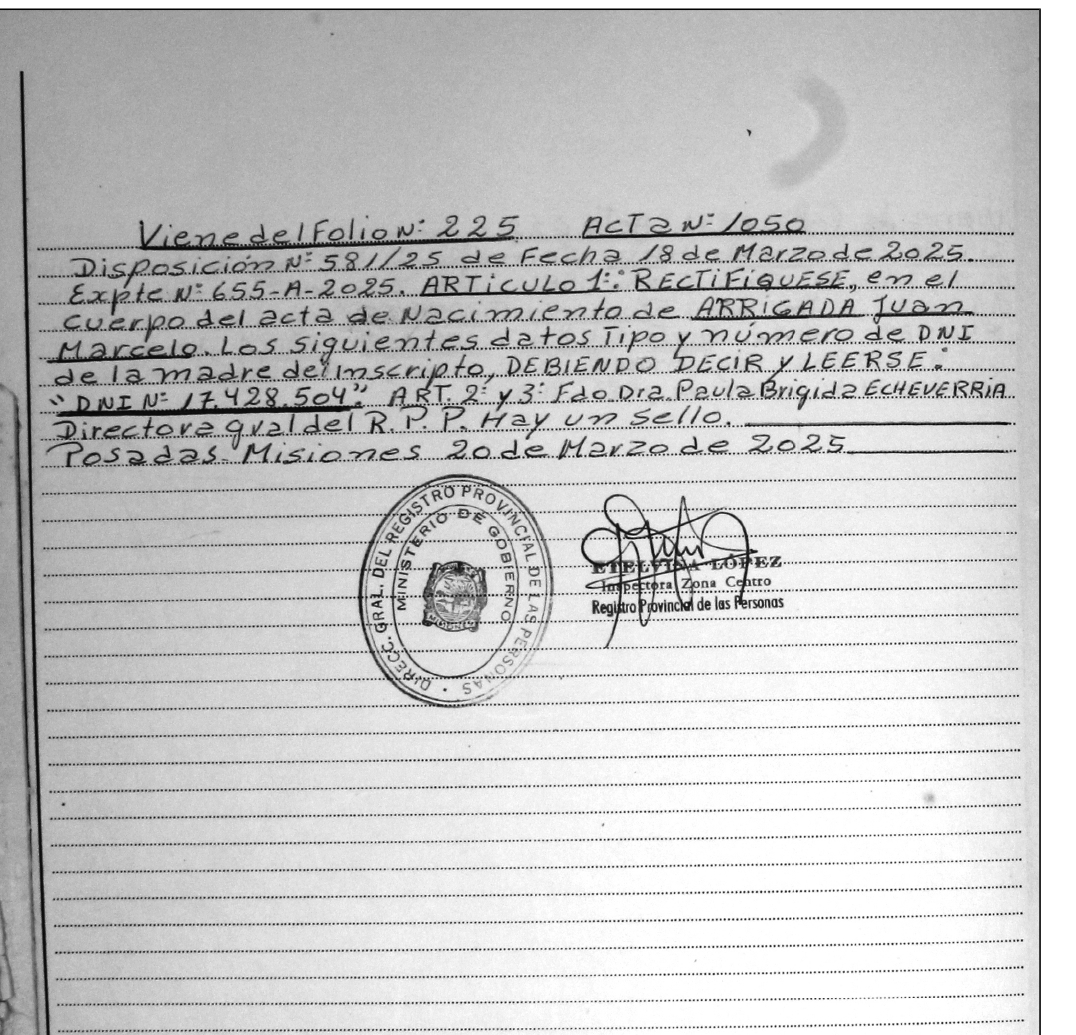 Viene del Folio Nº 225 ACTA Nº 1050
Disposición Nº 581/25 de Fecha 18 de Marzo de 2025.
Expte Nº 655-A-2025. ARTICULO 1º: RECTIFIQUESE, en el
cuerpo del acta de Nacimiento de ARRIGADA Juan
Marcelo. Los siguientes datos Tipo y número de DNI
de la madre del inscripto, DEBIENDO DECIR Y LEERSE:
"DNI Nº 17.428.504". ART. 2º y 3º Fdo Dra. Paula Brigida ECHEVERRIA
Directora gral del R. P. P. Hay un sello.
Posadas Misiones 20 de Marzo de 2025
DIRECC. GRAL. DEL REGISTRO PROVINCIAL DE LAS PERSONAS
MINISTERIO DE GOBIERNO
ETELVINA LOPEZ
Inspectora Zona Centro
Registro Provincial de las Personas